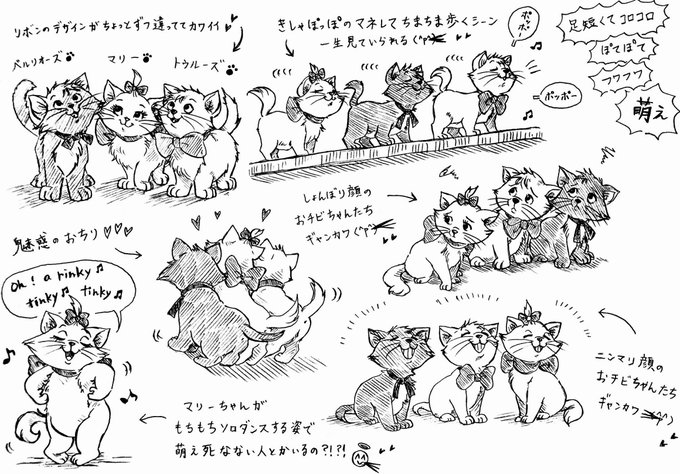 リボンのデザインがちょっとずつ違っててカワイイ♥
ベルリオーズ
マリー
トゥルーズ
きしゃぽっぽのマネしてちまちま歩くシーン
一生見ていられる
ポッポー
ポッポー
足短くてコロコロ
ぽてぽて
フワフワ
萌え
しょんぼり顔の
おチビちゃんたち
ギャンカワ
魅惑のおちり♡♡♡
Oh! a rinky
tinky tinky
マリーちゃんが
もちもちソロダンスする姿で
萌え死なない人とかいるの?!?!
ニンマリ顔の
おチビちゃんたち
ギャンカワ